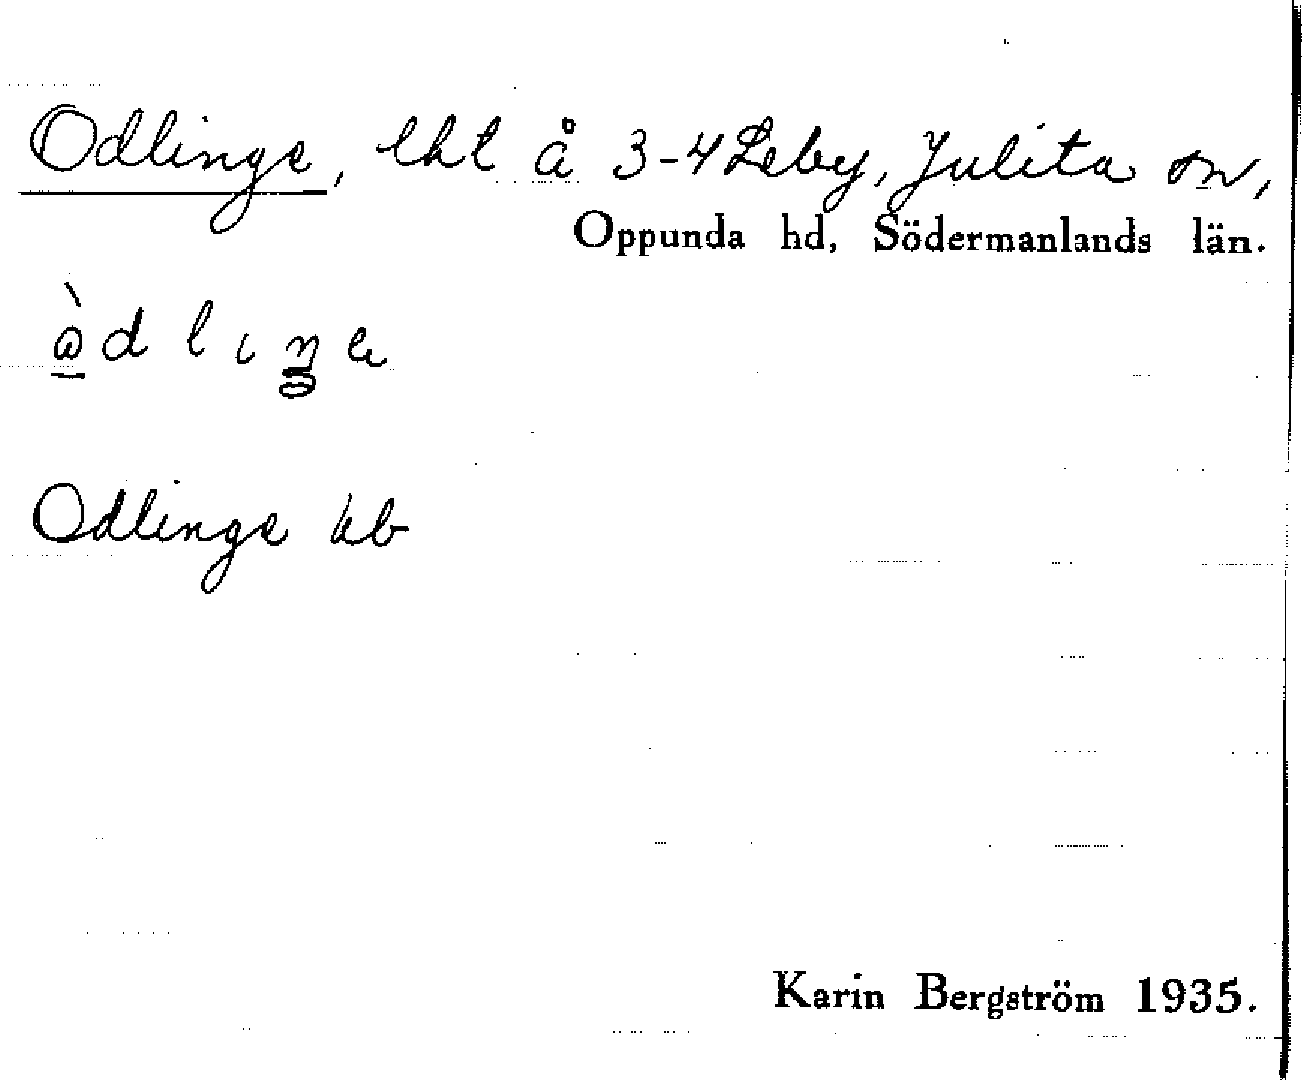 Odlinge, lht å 3-4 Leby, Julita sn,
Oppunda hd, Södermanlands län.
Odlinge kb
Karin Bergström 1935.